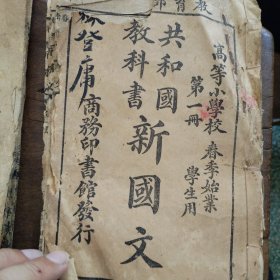 教育部
高等小學校 春季始業
第一冊 學生用
共和國
教科書
新國文
登庸 商務印書館發行